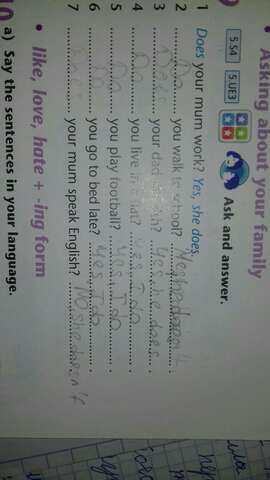 Asking about your family
5.S4 5.UE3
Ask and answer.
1 Does your mum work? Yes, she does.
2 Do you walk to school?
3 Does your dad Yes he does
4 Do you live in a flat? Yes I do
5 Do you play football? Yes, I do
6 Do you go to bed late? Yes, I do
7 your mum speak English? No she doesn't
• like, love, hate + -ing form
10 a) Say the sentences in your language.